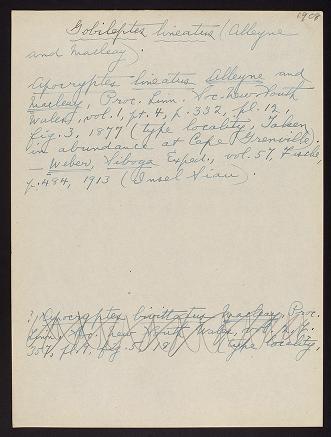 1908
Gobileptes lineatus (Alleyne
and Macleay).
Apocryptes lineatus Alleyne and
Macleay, Proc. Linn. Soc. New South
Wales, vol. 1, pt. 4, p. 332, pl. 12,
fig. 3, 1877 (type locality, Taken
in abundance at Cape Grenville).
— Weber, Siboga Exped., vol. 57, Fische
p. 484, 1913 (Insel Siau).
?) Apocryptes bivittatus Macleay, Proc.
Linn. Soc. New South Wales, vol.
357, pl. 9, fig. 5, 18 (type locality,